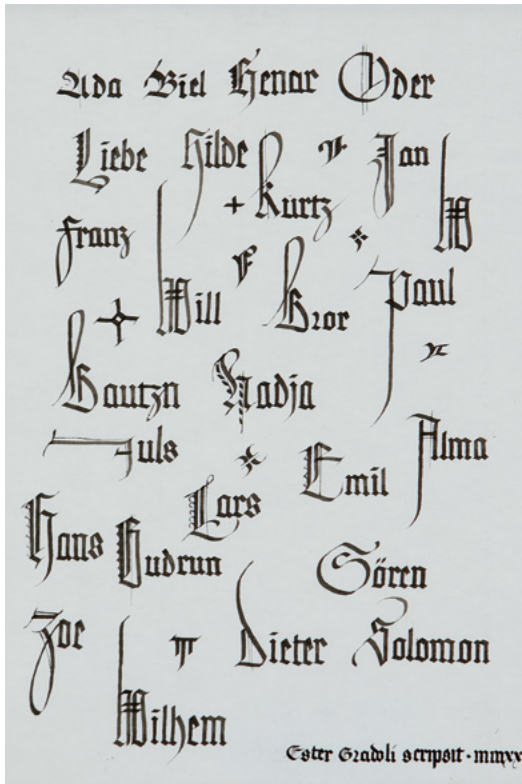 Ada Biel Henar Oder
Liebe Hilde Jan
+ Kurtz W
Franz
Will Bror Paul
Bautzn Nadja
Juls Alma
Lars Emil
Hans Gudrun Sören
Zoe Dieter Solomon
Wilhem
Ester Gradoli scripsit · mmxx